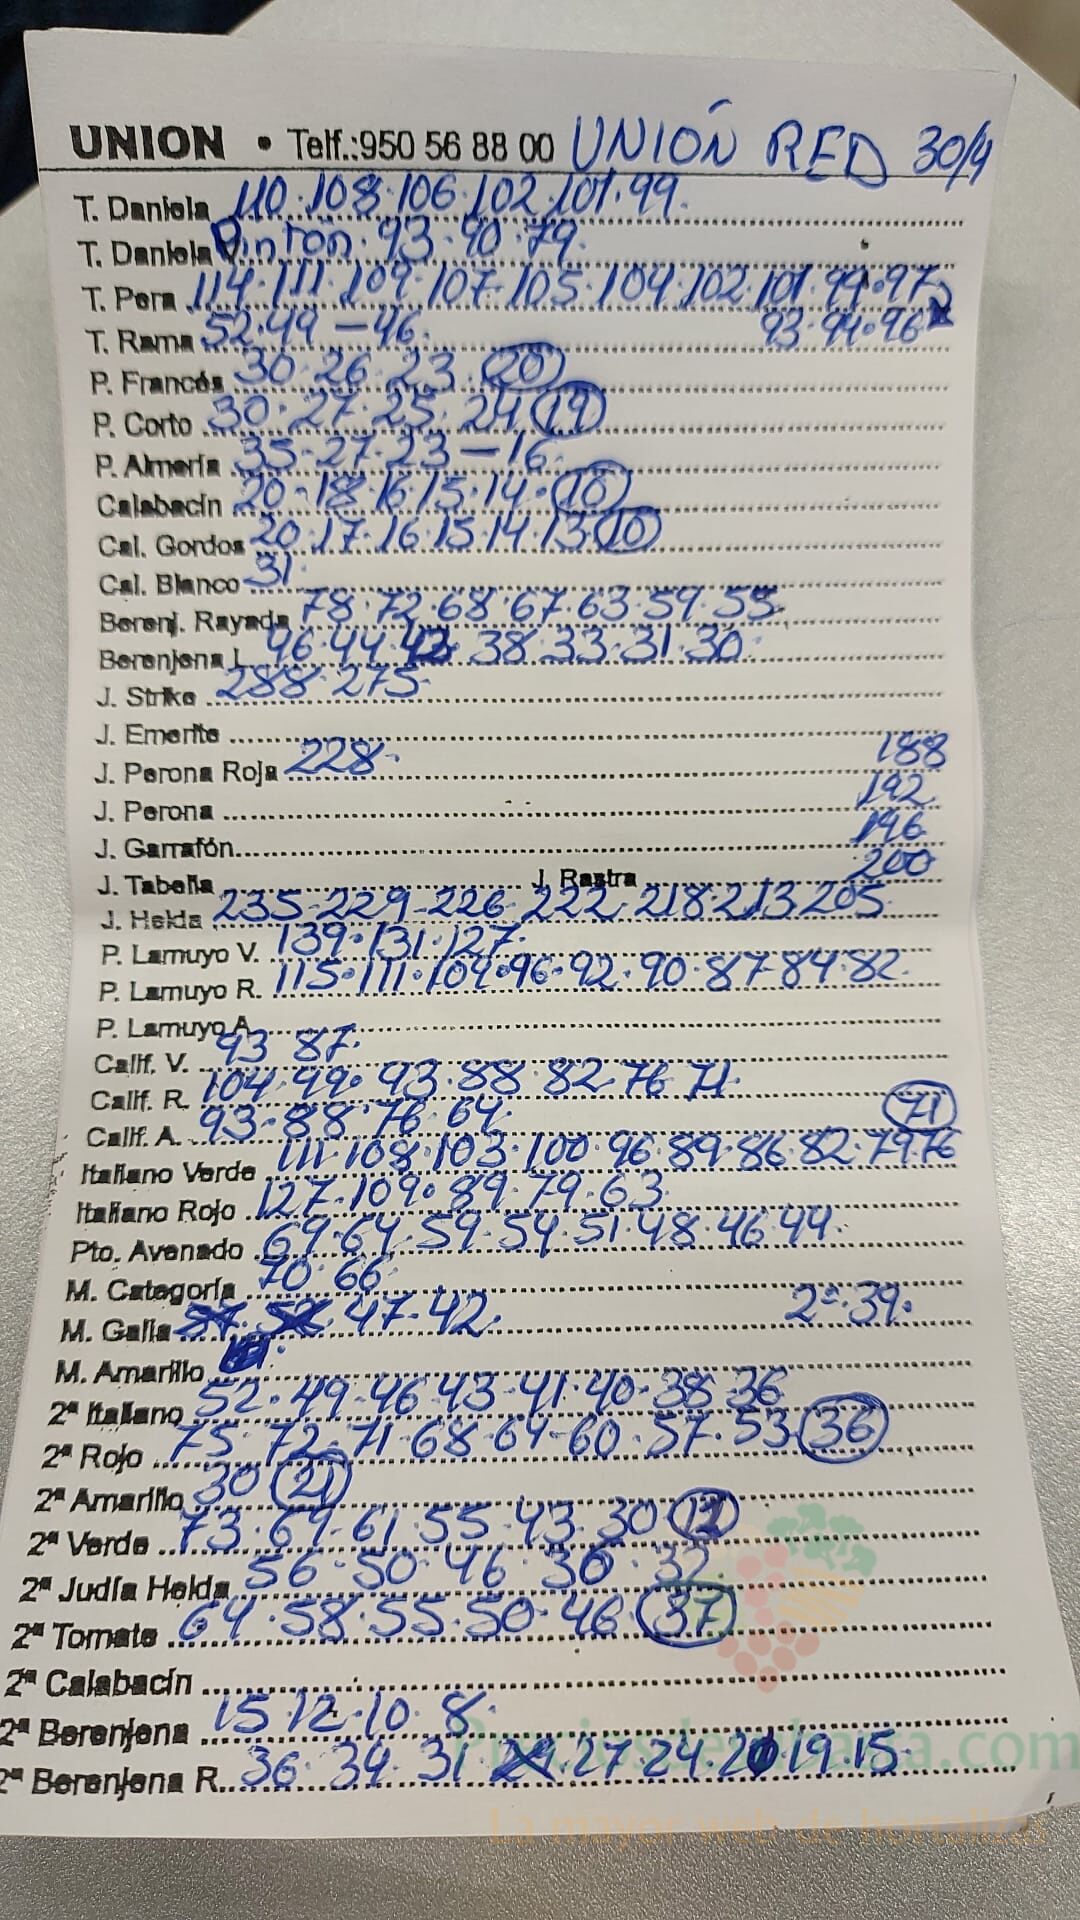 UNION • Telf.:950 56 88 00 UNIÓN RED 30/4
T. Daniela 110·108·106·102·101·99.
T. Daniela Pintón·93·90·79.
T. Pera 114·111·109·107·105·104·102·101·99·97
T. Rama 52·49 – 46. 93·94·96
P. Francés 30·26·23·(20)
P. Corto 30·27·25·24 (19)
P. Almería 35·27·23 – 16.
Calabacín 20·18·16·15·14·(10)
Cal. Gordos 20·17·16·15·14·13·(10)
Cal. Blanco 31.
Berenj. Rayada 78·72·68·67·63·59·55
Berenjena L 46·44·42·38·33·31·30.
J. Strike 288·275
J. Emerite
J. Perona Roja 228. 188
J. Perona 192
J. Garrafón 196
J. Tabella J. Rastra 200
J. Helda 235-229-226-222·218·213·205
P. Lamuyo V. 139·131·127.
P. Lamuyo R. 115·111·104·96·92·90·87·84·82.
P. Lamuyo A.
Calif. V. 93 87.
Calif. R. 104·99·93·88·82·76·71.
Calif. A. 93·88·76·64. (71)
Italiano Verde 111·108·103·100·96·89·86·82·79·76
Italiano Rojo 127·109·89·79·63.
Pto. Avenado 69·64·59·54·51·48·46·44.
M. Categoría 70·66.
M. Galia 47·42. 2ª·39.
M. Amarillo
2ª Italiano 52·49-46·43-41·40·38·36
2ª Rojo 75·72·71·68·64-60·57·53·(36)
2ª Amarillo 30 (21)
2ª Verde 73·69·61·55·43·30
2ª Judía Helda 56·50·46·36·32
2ª Tomate 64·58·55·50·46·(37)
2ª Calabacín
2ª Berenjena 15·12·10·8.
2ª Berenjena R. 36·34·31 27·24·20·19·15.
La mayor web de hortalizas